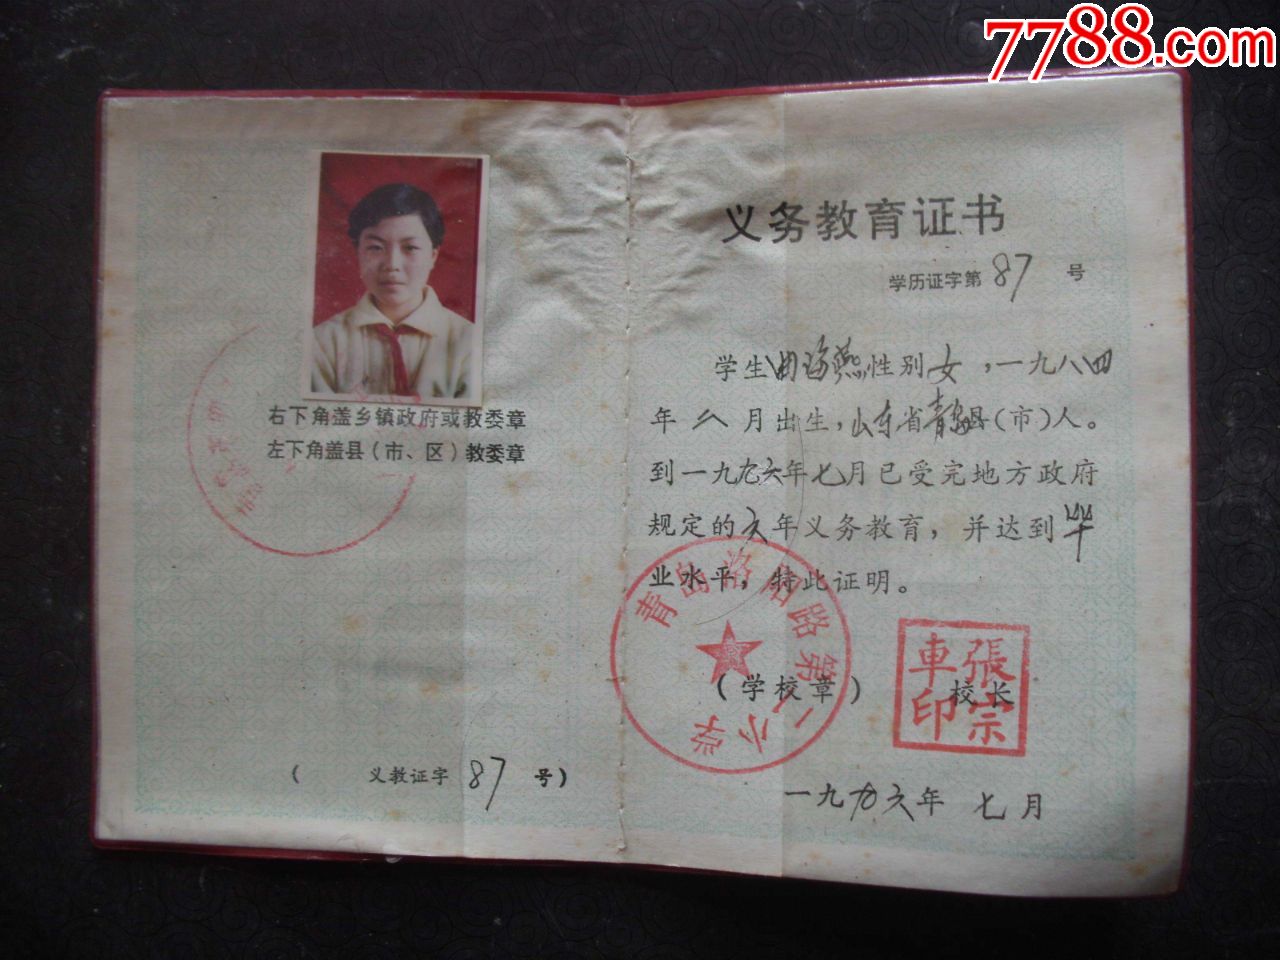 7788.com
右下角盖乡镇政府或教委章
左下角盖县(市、区)教委章
( 义教证字 87 号)
义务教育证书
学历证字第 87 号
学生曲海燕性别女,一九八四
年 八 月出生,山东省青岛县(市)人。
到一九九六年七月已受完地方政府
规定的六年义务教育,并达到 毕
业水平,特此证明。
青岛洛阳路第一小学
(学校章) 校长
張宗車印
一九九六年 七月